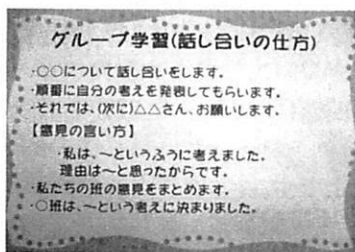 グループ学習(話し合いの仕方)
・○○について話し合いをします。
・順番に自分の考えを発表してもらいます。
・それでは、(次に)△△さん、お願いします。
【意見の言い方】
・私は、～というふうに考えました。
理由は～と思ったからです。
・私たちの班の意見をまとめます。
・○班は、～という考えに決まりました。